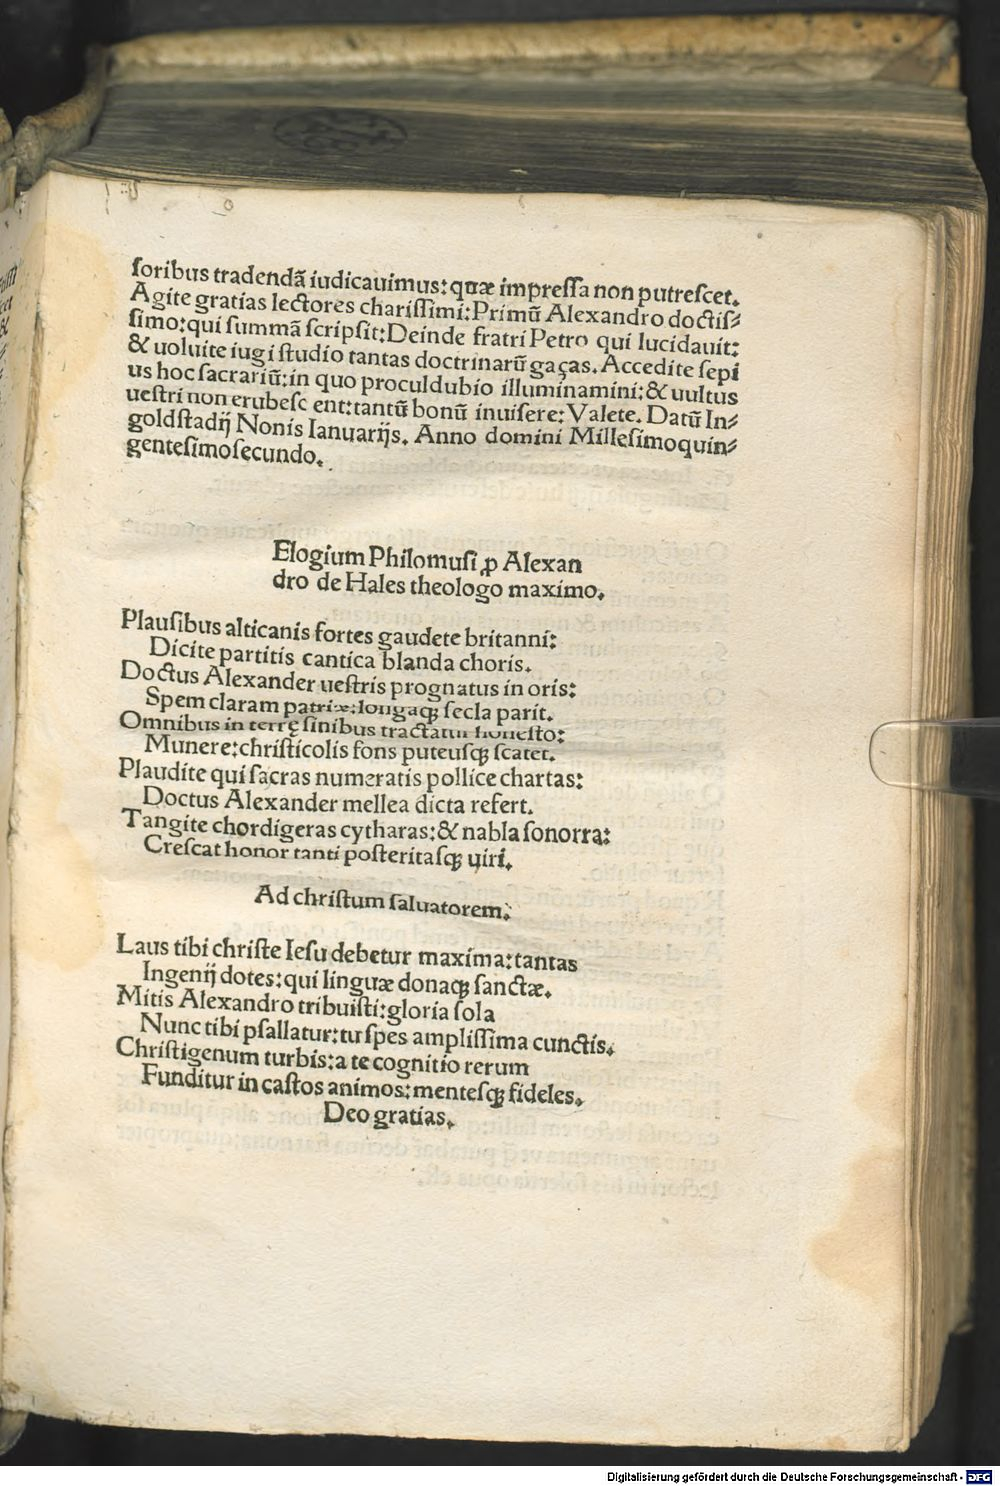 ſoribus tradendã iudicauimus: quæ impreſſa non putreſcet.
Agite gratias lectores chariſſimi: Primũ Alexandro doctiſ⸗
ſimo: qui ſummã ſcripſit: Deinde fratri Petro qui lucidauit:
& uoluite iugi ſtudio tantas doctrinarũ gaças. Accedite ſepi
us hoc ſacrariũ: in quo proculdubio illuminamini: & uultus
ueſtri non erubeſc ent: tantũ bonũ inuiſere: Valete. Datũ In⸗
goldſtadij Nonis Ianuarijs. Anno domini Milleſimoquin⸗
genteſimoſecundo.
Elogium Philomuſi ꝓ Alexan
dro de Hales theologo maximo.
Plauſibus alticanis fortes gaudete britanni:
Dicite partitis cantica blanda choris.
Doctus Alexander ueſtris prognatus in oris:
Spem claram patriæ: longaqꝫ ſecla parit.
Omnibus in terrę finibus tractatur honeſto:
Munere: chriſticolis fons puteuſqꝫ ſcatet.
Plaudite qui ſacras numeratis pollice chartas:
Doctus Alexander mellea dicta refert.
Tangite chordigeras cytharas: & nabla ſonorra:
Creſcat honor tanti poſteritaſqꝫ uiri.
Ad chriſtum ſaluatorem.
Laus tibi chriſte Ieſu debetur maxima: tantas
Ingenij dotes: qui linguæ donaqꝫ ſanctæ.
Mitis Alexandro tribuiſti: gloria ſola
Nunc tibi pſallatur: tu ſpes ampliſſima cunctis.
Chriſtigenum turbis: a te cognitio rerum
Funditur in caſtos animos: menteſqꝫ fideles.
Deo gratias.
Digitalisierung gefördert durch die Deutsche Forschungsgemeinschaft - DFG